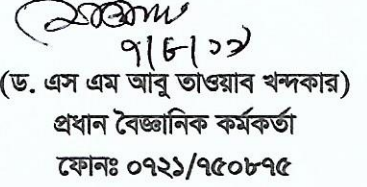 ৭/৮/১১
(ড. এস এম আবু তাওয়াব খন্দকার)
প্রধান বৈজ্ঞানিক কর্মকর্তা
ফোনঃ ০৭২১/৭৫০৮৭৫